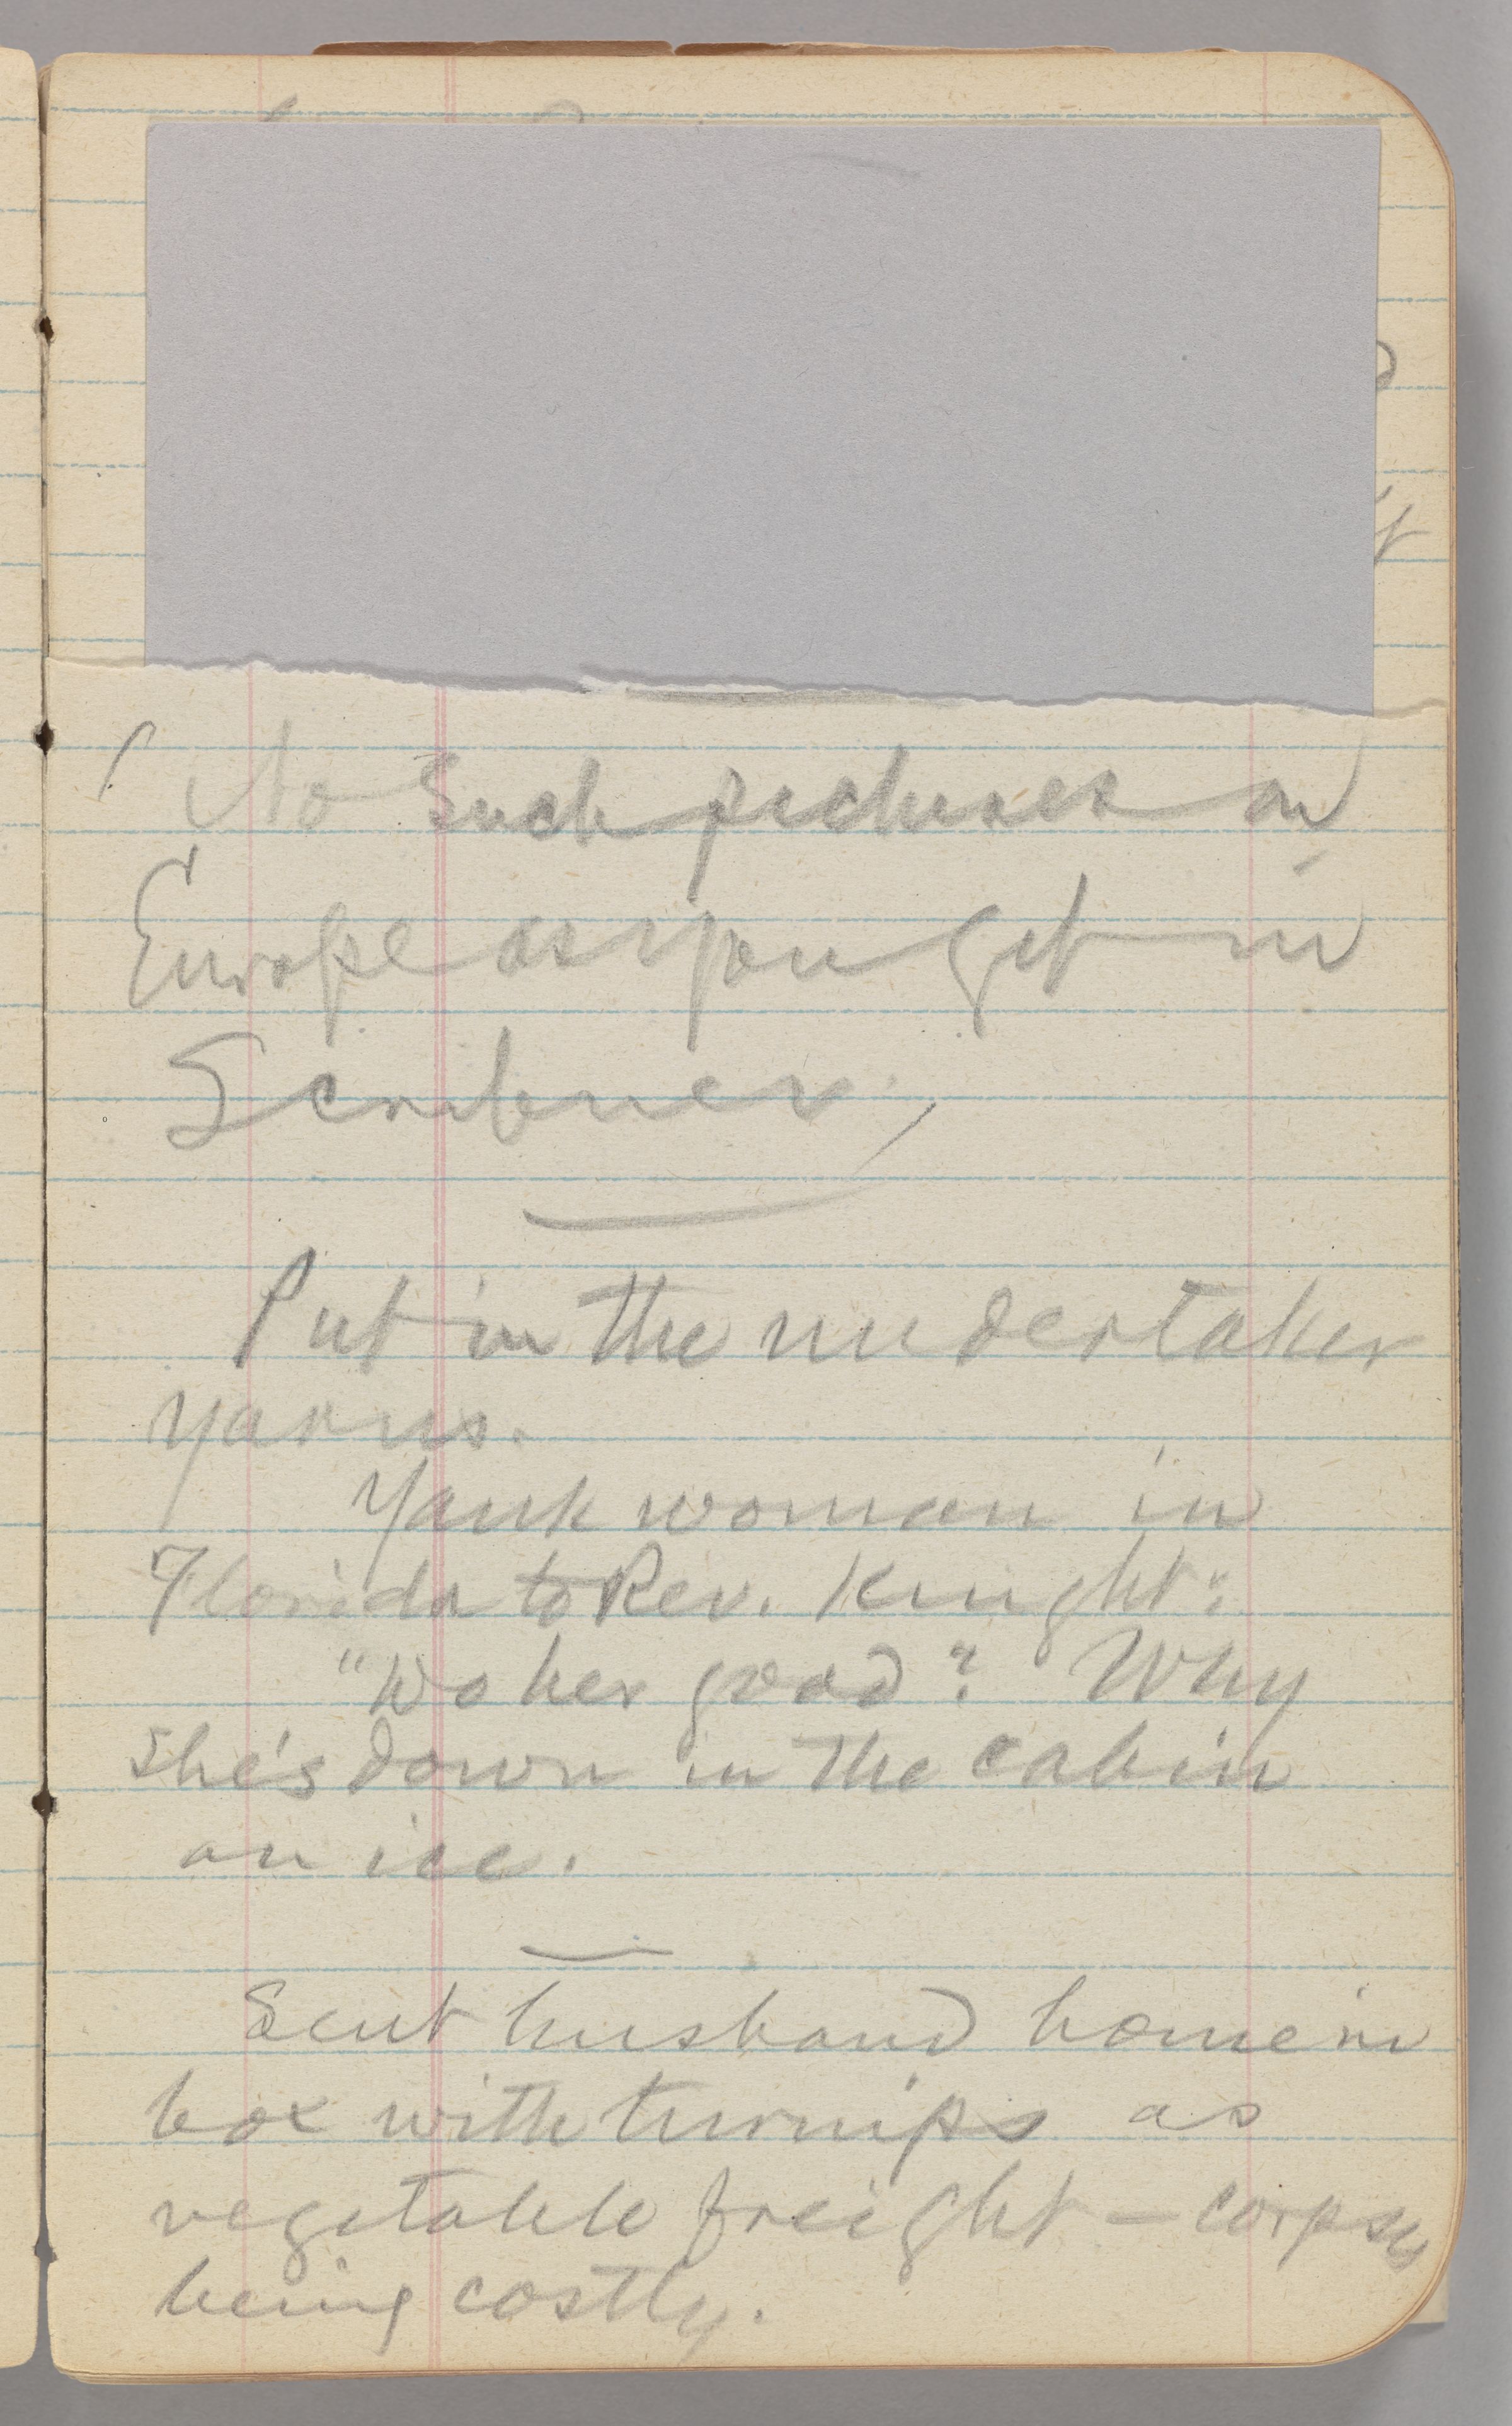 No such pictures in
Europe as you get in
Scribner,
Put in the undertaker
yarns.
Yank woman in
Florida to Rev. Knight:
"Do her good? Why
she's down in the cabin
on ice.
Sent husband home in
box with turnips as
vegetable freight — corpses
being costly.